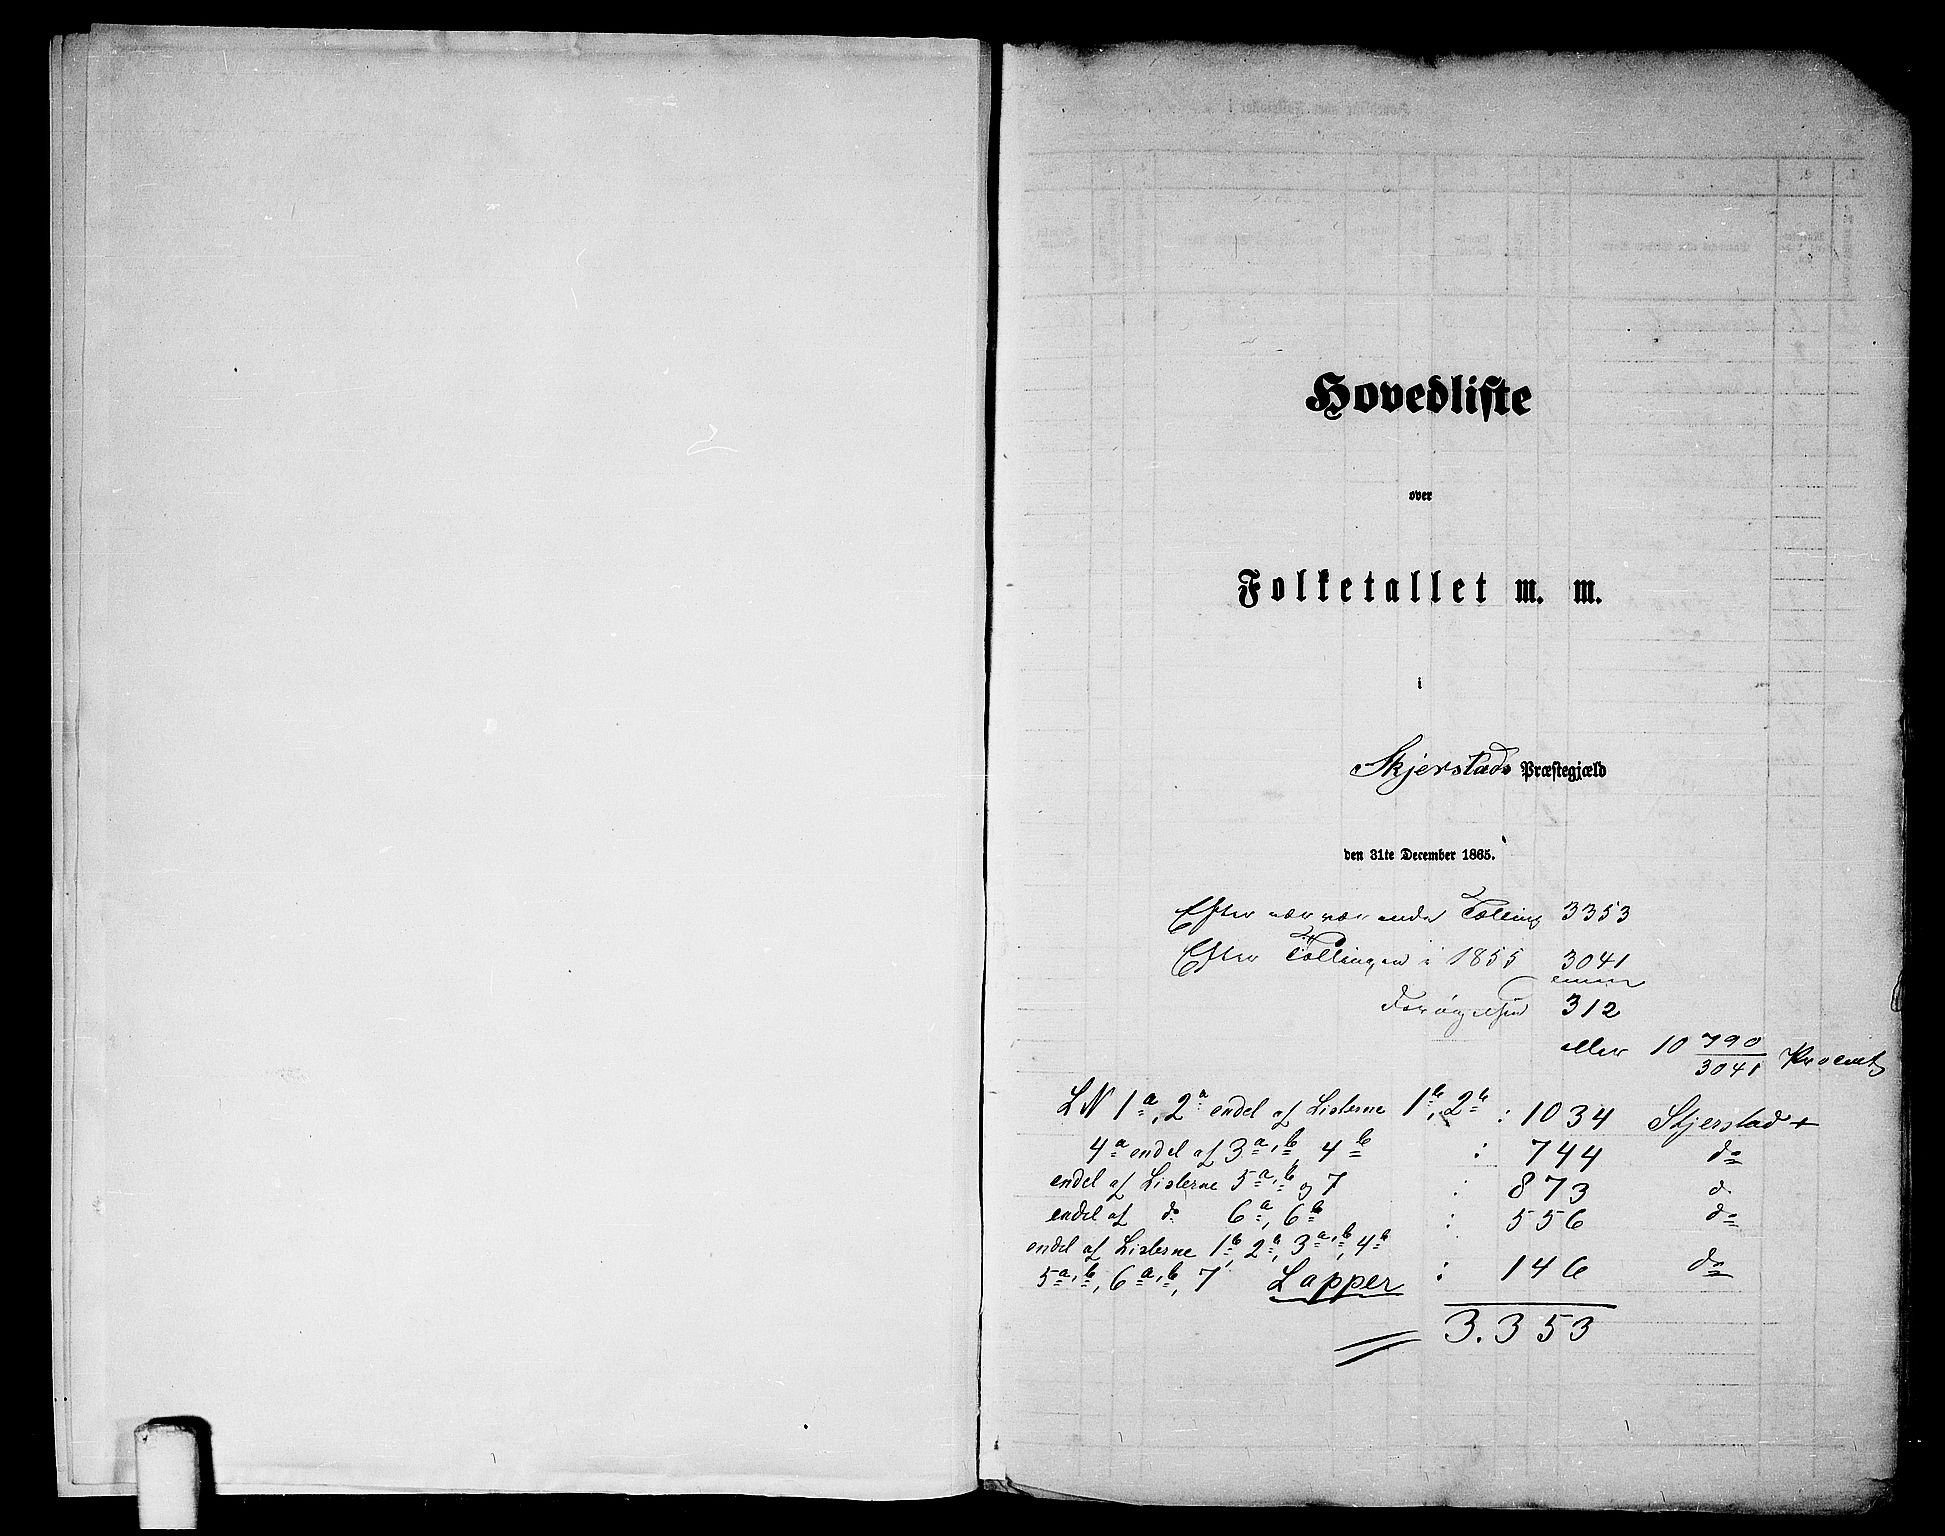 Hovedliste
over
Folketallet m. m.
i
Skjerstads Præstegjæld
den 31te December 1865.
Efter nærværende Tælling 3353
Efter Tællingen i 1855 3041
Forøgelsen 312
eller 10 790/3041 Procent
LN 1a, 2a endel af Listerne 1b, 2b : 1034 Skjerstad +
4a endel af 3a,b, 4b : 744 do
endel af Listerne 5a,b og 7 : 873 d
endel af do 6a, 6b : 556 do
endel af Listerne 1b, 2b, 3a,b, 4b
5a,b, 6a,b, 7 Lapper : 146 do
3.353